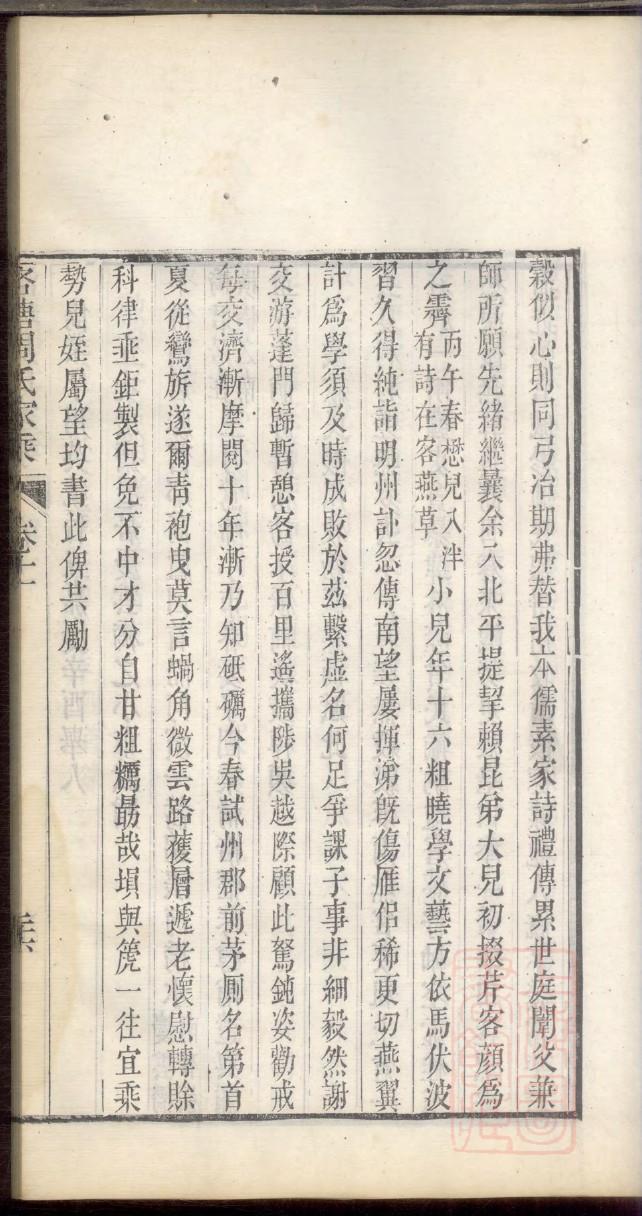 穀似心則同弓冶期弗替我本儒素家詩禮傳累世庭闈父兼
師所願先緒繼曩余入北平提挈賴昆弟大兒初掇芹客顏爲
之霽丙午春懋兒入泮有詩在客燕草小兒年十六粗曉學文藝方依馬伏波
習久得純詣明州訃忽傳南望屢揮涕旣傷雁侶稀更切燕翼
計爲學須及時成敗於茲繫虛名何足爭課子事非細毅然謝
交游蓬門歸暫憩客授百里遙攜陟吳越際顧此駑鈍姿勸戒
每交濟漸摩閱十年漸乃知砥礪今春試州郡前茅厠名第首
夏從鸞旂遂爾靑袍曳莫言蝸角微雲路薐層遞老懷慰轉賒
科律垂鉅製但免不中才分自甘粗糲勗哉塤與篪一往宜乘
勢兒姪屬望均書此俾共勵
周氏家乘
卷十一